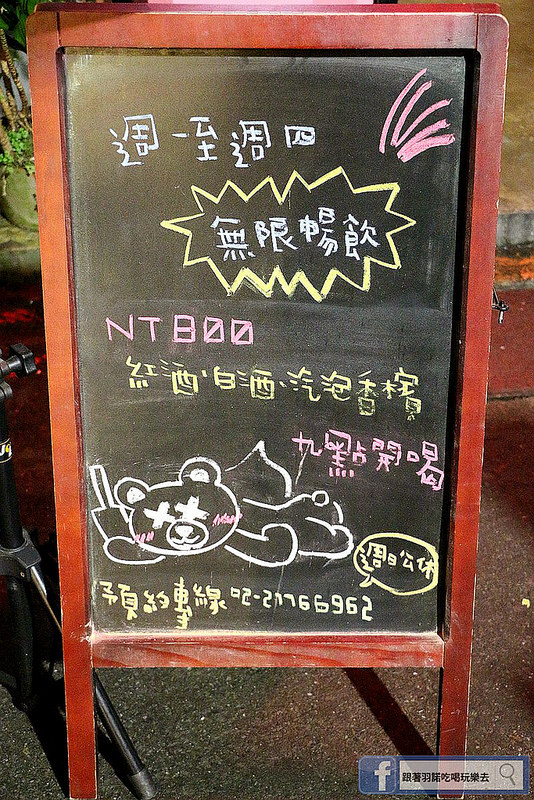 週一至週四
無限暢飲
NT800
紅酒、白酒、汽泡香檳
九點開喝
週日公休
預約專線 02-27766962
f 跟著羽諾吃喝玩樂去